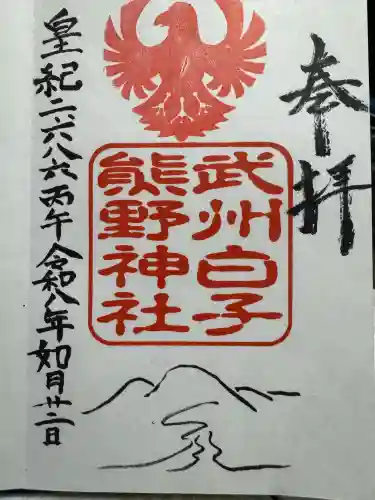 奉拝
武州白子
熊野神社
皇紀二六八六丙午令和八年如月廿二日